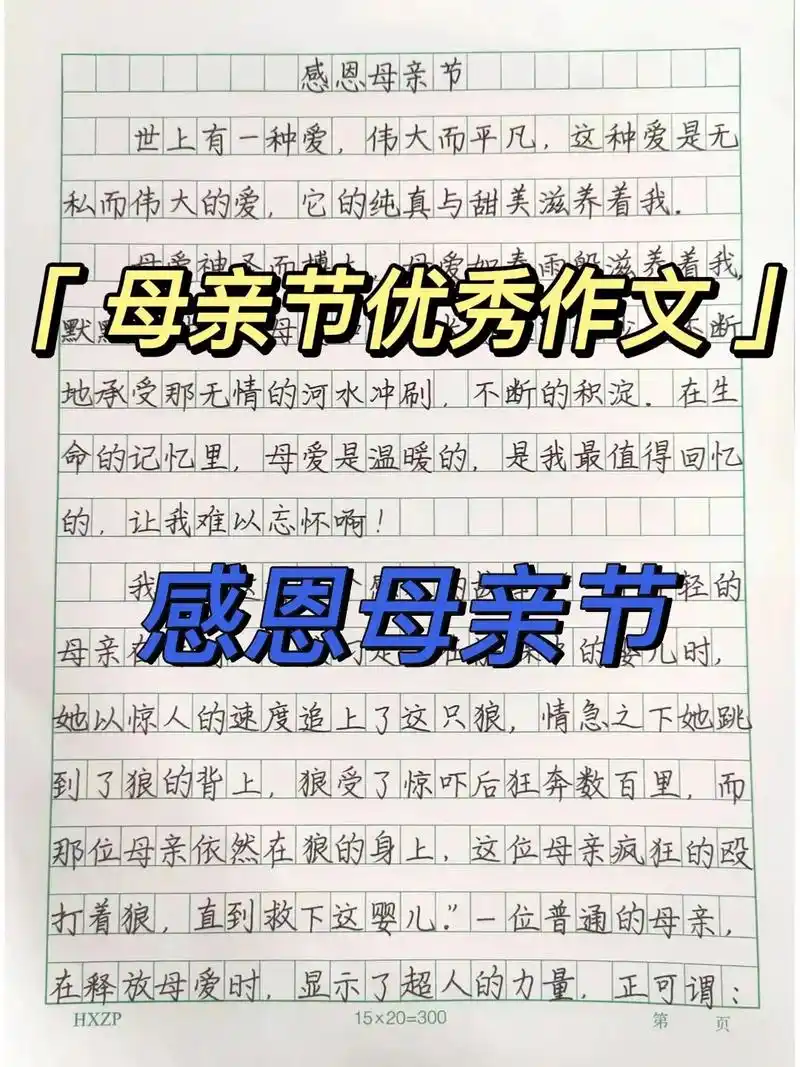 感恩母亲节
世上有一种爱，伟大而平凡，这种爱是无
私而伟大的爱，它的纯真与甜美滋养着我.
母爱神圣而博大，母爱如春雨般滋养着我，
「母亲节优秀作文」
默 断
地承受那无情的河水冲刷，不断的积淀.在生
命的记忆里，母爱是温暖的，是我最值得回忆
的，让我难以忘怀啊！
我 轻的
感恩母亲节
母亲 的婴儿时，
她以惊人的速度追上了这只狼，情急之下她跳
到了狼的背上，狼受了惊吓后狂奔数百里，而
那位母亲依然在狼的身上，这位母亲疯狂的殴
打着狼，直到救下这婴儿.”一位普通的母亲，
在释放母爱时，显示了超人的力量，正可谓：
HXZP 15×20=300 第 页